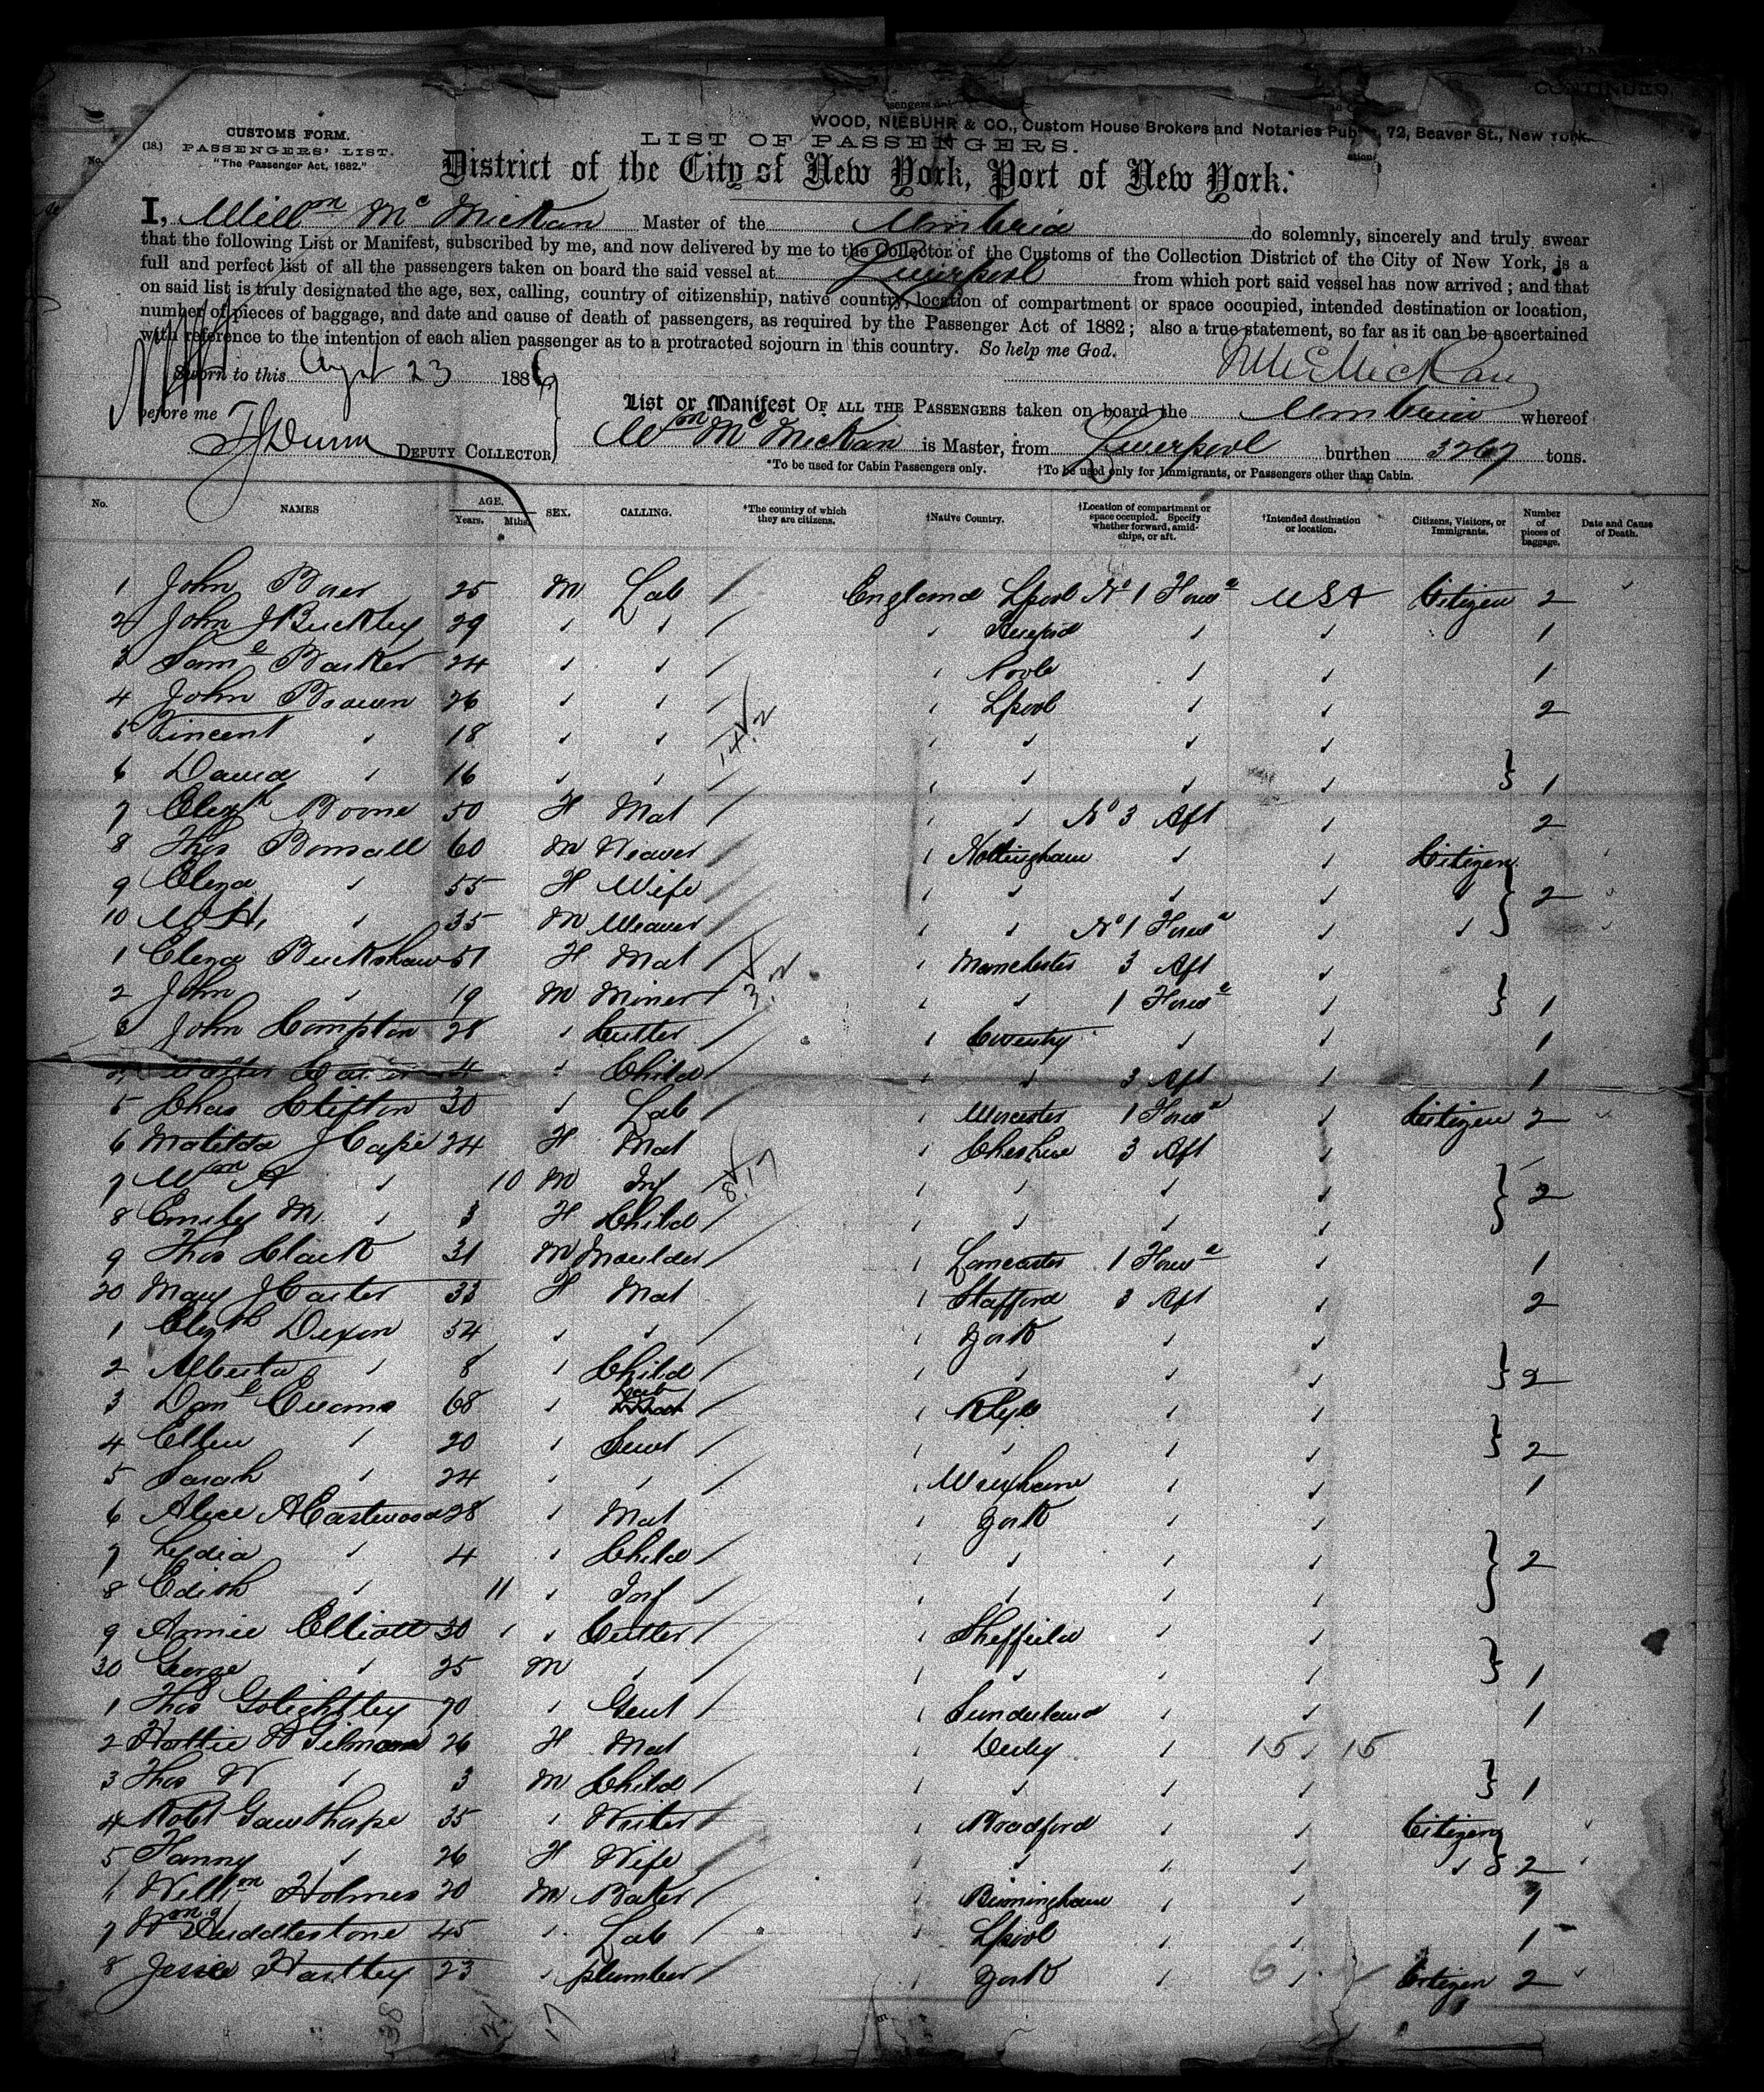 CONTINUED.
WOOD, NIEBUHR & CO., Custom House Brokers and Notaries Pub 72, Beaver St., New York.
CUSTOMS FORM.
(18.) PASSENGERS' LIST.
"The Passenger Act, 1882."
No.
LIST OF PASSENGERS.
District of the City of New York, Port of New York.
I, Will^m M^c Mickan Master of the Umbria do solemnly, sincerely and truly swear
that the following List or Manifest, subscribed by me, and now delivered by me to the Collector of the Customs of the Collection District of the City of New York, is a
full and perfect list of all the passengers taken on board the said vessel at Liverpool from which port said vessel has now arrived; and that
on said list is truly designated the age, sex, calling, country of citizenship, native country, location of compartment or space occupied, intended destination or location,
number of pieces of baggage, and date and cause of death of passengers, as required by the Passenger Act of 1882; also a true statement, so far as it can be ascertained
with reference to the intention of each alien passenger as to a protracted sojourn in this country. So help me God.
Sworn to this Augst 23 1886
before me
DEPUTY COLLECTOR
List or Manifest OF ALL THE PASSENGERS taken on board the Umbria whereof
W^m M^c Mickan is Master, from Liverpool burthen 3267 tons.
*To be used for Cabin Passengers only. †To be used only for Immigrants, or Passengers other than Cabin.
No. NAMES AGE. Years. Mths. SEX. CALLING. *The country of which they are citizens. †Native Country. †Location of compartment or space occupied. Specify whether forward, amidships, or aft. †Intended destination or location. Citizens, Visitors, or Immigrants. Number of pieces of baggage. Date and Cause of Death.
1 John 25 M Lab England Lpool No 1 Forw^d USA Citizen 2
2 John J Buckley 29 1
3 Sam^l Barker 24 1
4 John Brown 26 Lpool 2
5 Vincent 18
6 David 16 } 1
7 Eliz^th Boone 50 F Mat No 3 Aft 2
8 Thos Bonsall 60 M Weaver Nottingham Citizen
9 Eliza 55 F Wife } 2
10 W H 35 M Weaver No 1 Forw^d
1 Eliza Buckshaw 51 F Mat Manchester 3 Aft
2 John 19 M Miner 1 Forw^d } 1
3 John Compton 28 Cutter Coventry 1
4 4 Child 3 Aft 1
5 Chas Clifton 30 Lab Worcester 1 Forw^d Citizen 2
6 Matilda J Cape 24 F Mat Cheshire 3 Aft
7 W^m A 10 M Inf } 2
8 Emily M 3 F Child
9 Thos Clark 31 M Moulder Lancaster 1 Forw^d 1
20 Mary J Carter 33 F Mat Stafford 3 Aft 2
1 Eliz^th Dixon 54 York
2 Alberta 8 Child } 2
3 Dan^l Evans 68 Lab Rhyl
4 Ellen 20 Servt } 2
5 Sarah 24 Wrexham 1
6 Alice A Eastwood 28 Mat York
7 Lydia 4 Child } 2
8 Edith 11 Inf
9 Annie Elliott 30 Cutler Sheffield
30 George 25 M } 1
1 Thos Golightley 70 Gent Sunderland 1
2 Hattie W Gilman 26 F Mat Derby 15 15
3 Thos W 3 M Child } 1
4 Robt Gawthorpe 35 Writer Bradford Citizen
5 Fanny 26 F Wife 2
6 Will^m Holmes 20 M Baker Birmingham 1
7 W^m Huddlestone 45 Lab Lpool 1
8 Jessie Hartley 23 plumber York 6 Citizen 2
38 21 17